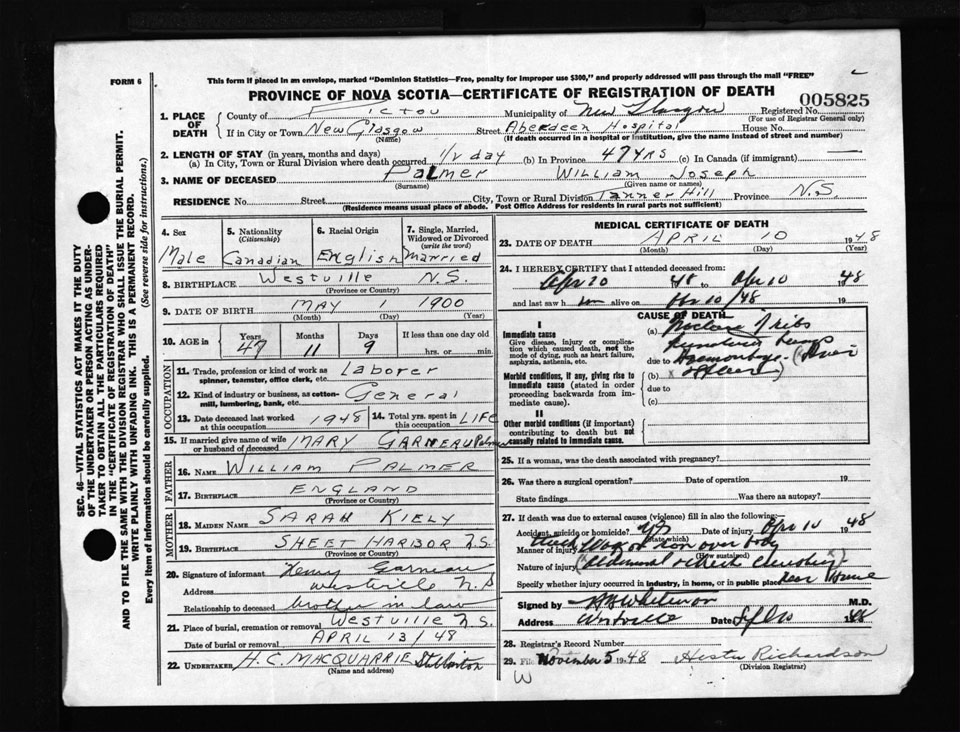 FORM 6
This form if placed in an envelope, marked "Dominion Statistics—Free, penalty for improper use $300," and properly addressed will pass through the mail "FREE"
PROVINCE OF NOVA SCOTIA—CERTIFICATE OF REGISTRATION OF DEATH
005825
1. PLACE OF DEATH
County of Pictou Municipality of New Glasgow Registered No.
(For use of Registrar General only)
If in City or Town New Glasgow Street Aberdeen Hospital House No.
(Name) (If death occurred in a hospital or institution, give the name instead of street and number)
2. LENGTH OF STAY (in years, months and days)
(a) In City, Town or Rural Division where death occurred 1/2 day (b) In Province 47 YRS (c) In Canada (if immigrant) —
3. NAME OF DECEASED Palmer William Joseph
(Surname) (Given name or names)
RESIDENCE No. Street City, Town or Rural Division Tanner Hill Province N.S.
(Residence means usual place of abode. Post Office Address for residents in rural parts not sufficient)
4. Sex Male
5. Nationality (Citizenship) Canadian
6. Racial Origin English
7. Single, Married, Widowed or Divorced (write the word) Married
8. BIRTHPLACE Westville N.S.
(Province or Country)
9. DATE OF BIRTH MAY 1 1900
(Month) (Day) (Year)
10. AGE in Years 47 Months 11 Days 9 If less than one day old hrs. or min.
OCCUPATION
11. Trade, profession or kind of work as spinner, teamster, office clerk, etc. Laborer
12. Kind of industry or business, as cotton-mill, lumbering, bank, etc. General
13. Date deceased last worked at this occupation 1948
14. Total yrs. spent in this occupation LIFE
15. If married give name of wife or husband of deceased MARY GARNEAU Palmer
FATHER
16. NAME WILLIAM PALMER
17. BIRTHPLACE ENGLAND
(Province or Country)
MOTHER
18. MAIDEN NAME SARAH KIELY
19. BIRTHPLACE SHEET HARBOR N.S.
(Province or Country)
20. Signature of informant Henry Garneau
Address Westville N.S
Relationship to deceased brother in law
21. Place of burial, cremation or removal Westville N.S.
Date of burial or removal APRIL 13/48
22. UNDERTAKER H.C. MACQUARRIE Stellarton
(Name and address)
MEDICAL CERTIFICATE OF DEATH
23. DATE OF DEATH APRIL 10 1948
(Month) (Day)
24. I HEREBY CERTIFY that I attended deceased from:
Apr 10 48 to Apr 10 1948
and last saw him alive on Apr 10/48 19
CAUSE OF DEATH
I
Immediate cause
Give disease, injury or complication which caused death, not the mode of dying, such as heart failure, asphyxia, asthenia, etc.
(a) ribs
due to Haemorrhage
Morbid conditions, if any, giving rise to immediate cause (stated in order proceeding backwards from immediate cause).
(b)
due to
(c)
II
Other morbid conditions (if important) contributing to death but not causally related to immediate cause.
25. If a woman, was the death associated with pregnancy?
26. Was there a surgical operation? Date of operation 19
State findings Was there an autopsy?
27. If death was due to external causes (violence) fill in also the following:
Accident, suicide or homicide? yes Date of injury Apr 10 1948
(State which)
Manner of injury Wagon ran over body
(How sustained)
Nature of injury
Specify whether injury occurred in industry, in home, or in public place near home
Signed by M.D.
Address Westville Date 1948
28. Registrar's Record Number
29. Filed November 5 1948 Hester Richardson
(Division Registrar)
W
SEC. 46—VITAL STATISTICS ACT MAKES IT THE DUTY
OF THE UNDERTAKER OR PERSON ACTING AS UNDER-
TAKER TO OBTAIN ALL THE PARTICULARS REQUIRED
IN THE "CERTIFICATE OF REGISTRATION OF DEATH"
AND TO FILE THE SAME WITH THE DIVISION REGISTRAR WHO SHALL ISSUE THE BURIAL PERMIT.
WRITE PLAINLY WITH UNFADING INK. THIS IS A PERMANENT RECORD.
Every item of Information should be carefully supplied. (See reverse side for instructions.)